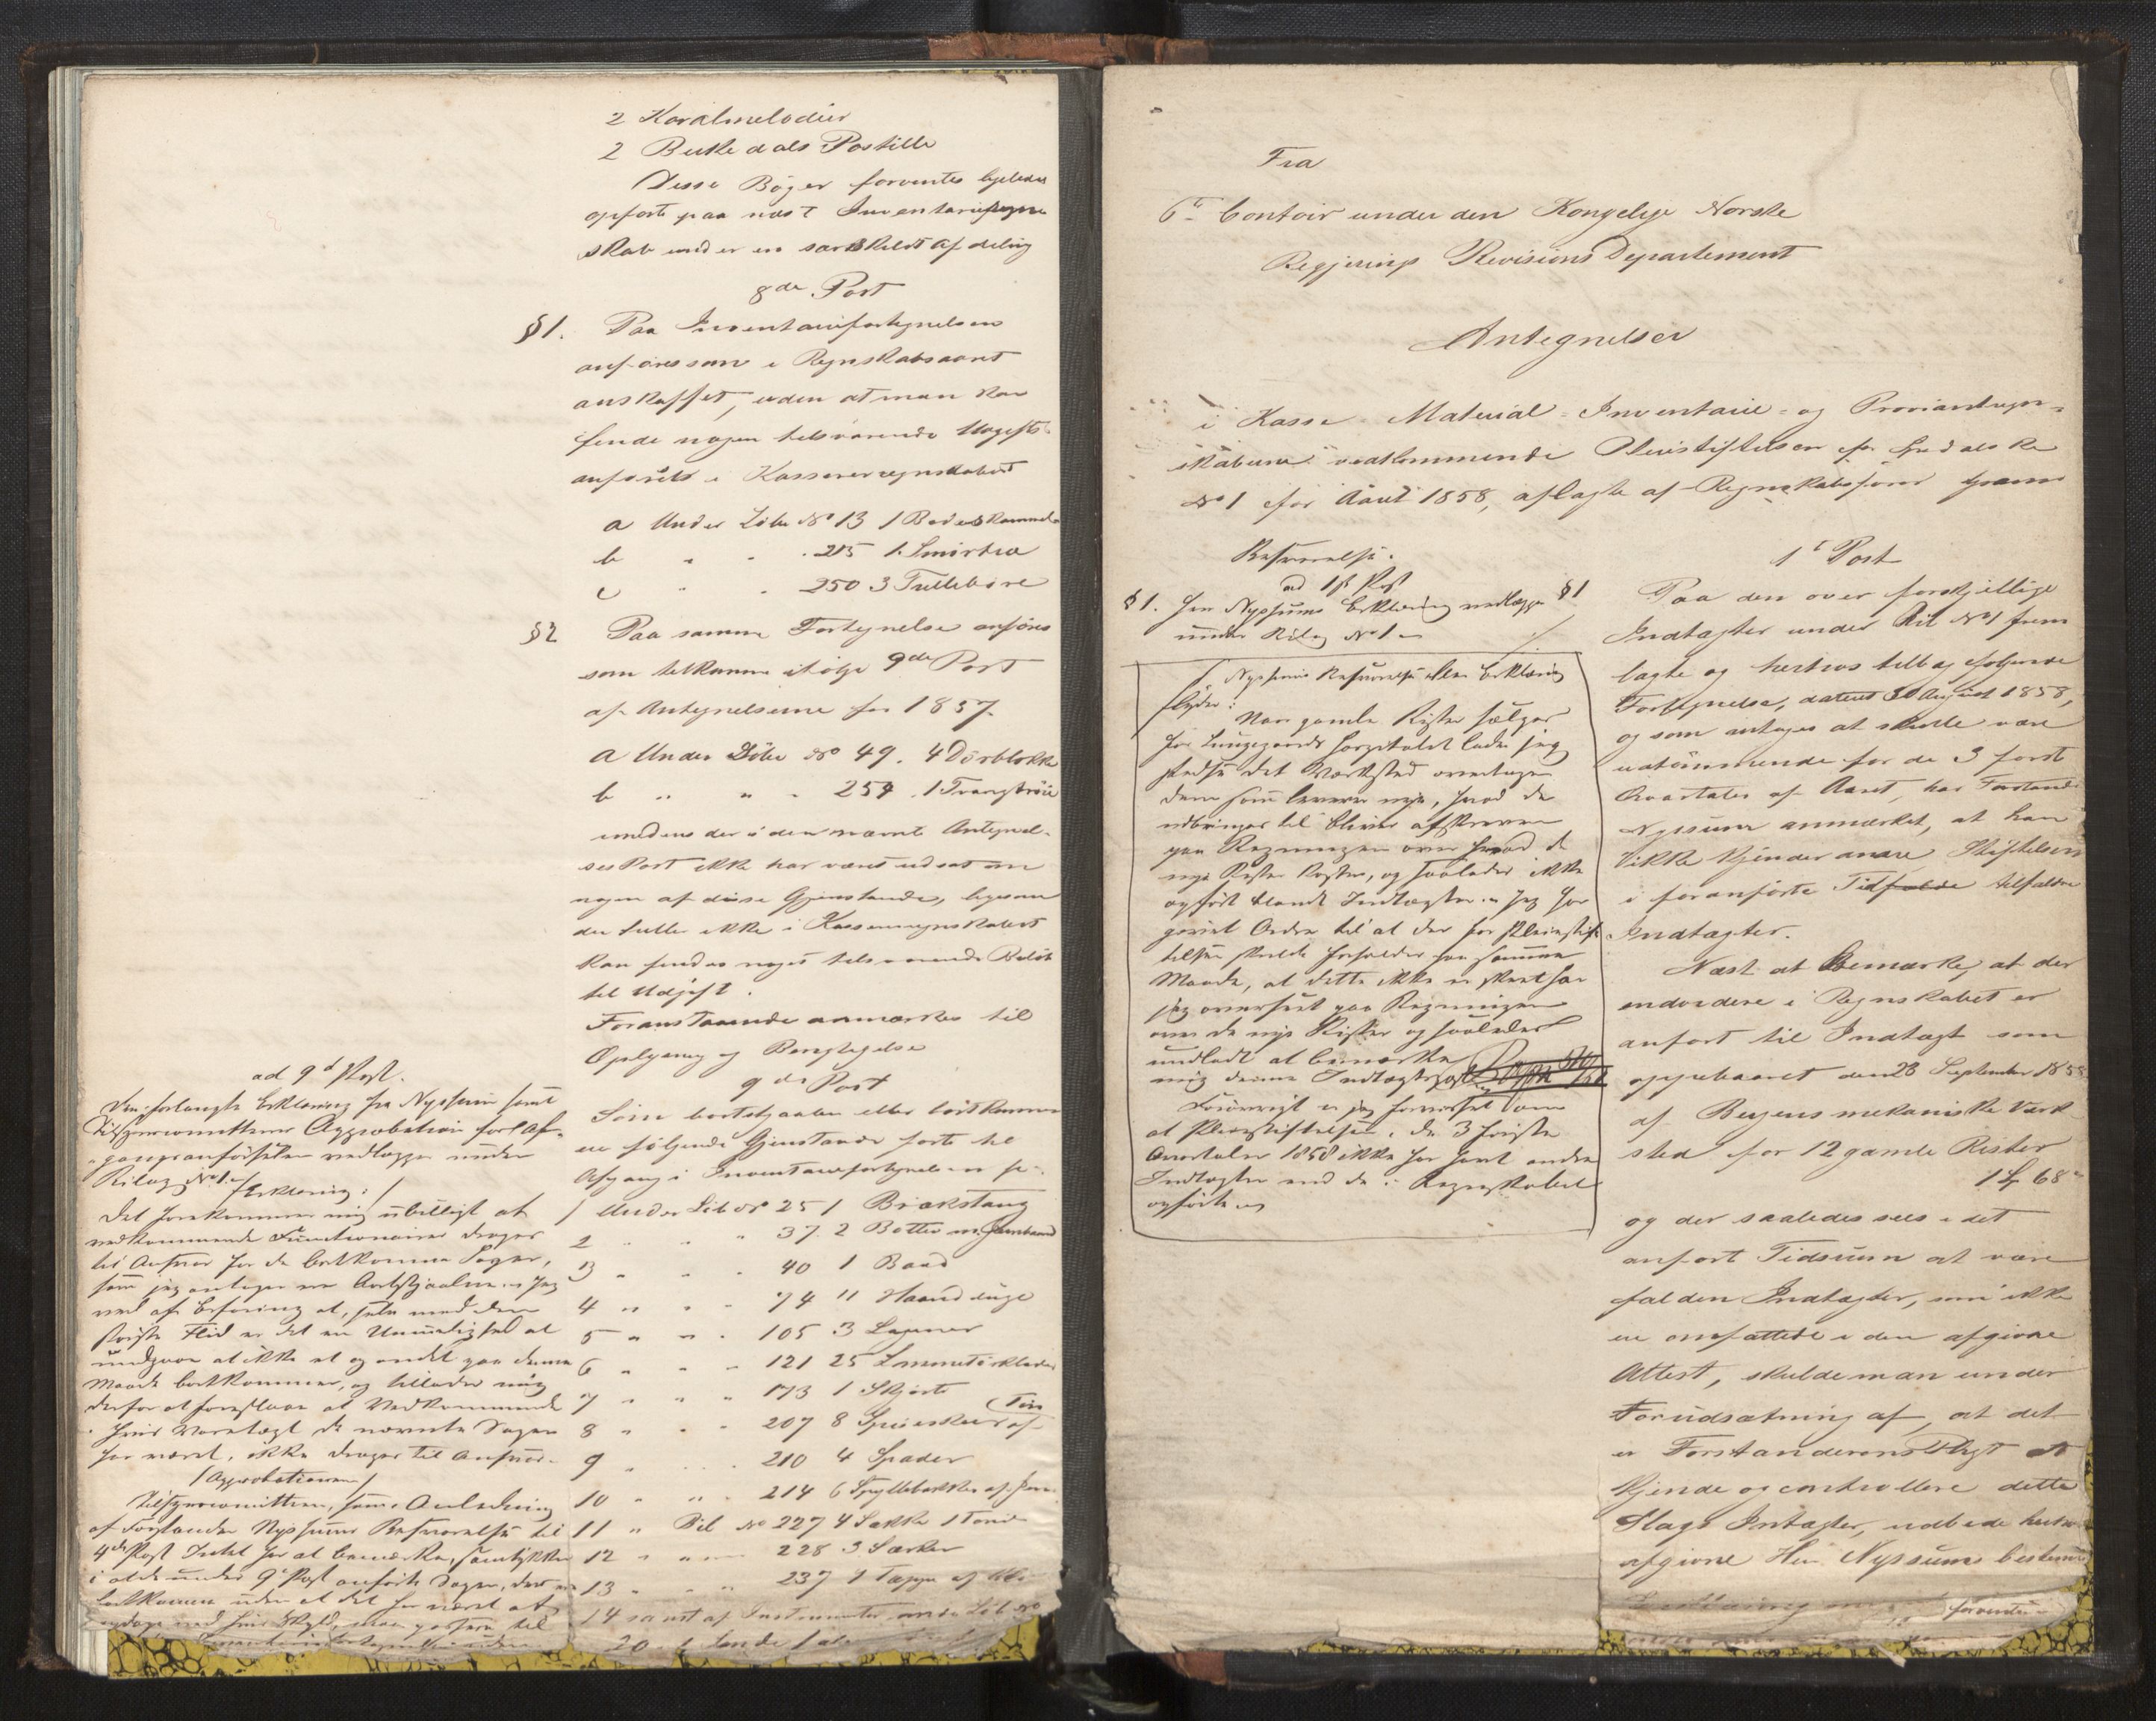 2 Koralmelodier
2 Bukedals Postille
Disse Böger forventes ligeledes
opförte paa næst Inventarieregn-
skab under en særskildt afdeling
8de Post
§ 1. Paa Inventariefortegnelsen
anföres som i Regnskabsaaret
anskaffet, uden at man kan
finde nogen tilsvarende Udgift
anfört i Kasseregnskabet
a Under Löbe No 13 1
b " " 215 1
c " " 250 3 Trillebøre
§ 2 Paa samme Fortegnelse anföres
som tilkomne ifölge 9de Post
af Antegnelserne for 1857.
a Under Löbe No 49. 4 Dörblokke
b " " 254. 1
medens der i den nævnte Antegnel-
ses Post ikke har været udsat om
nogen af disse Gjenstande, ligesom
der heller ikke i Kasseregnskabet
kan findes noget tilsvarende Belöb
til Udgift.
Foranstaaende anmærkes til
Oplysning og Berigtigelse
9de Post
Som bortstjaalen eller bortkommen
ere fölgende Gjenstande förte til
Afgang i Inventariefortegnelsen
1 Under Lit No 25 1 Brækstang
2 " " " 37. 2 Bötter m. Jernbaand
3 " " " 40 1 Baad
4 " " " 74 11 Haandduge
5 " " " 105 3 Lagener
6 " " " 121 25 Lommetörklæder
7 " " " 173 1 Skjorte
8 " " " 207 8 Spiseskeer af Tin
9 " " " 210 4 Spader
10 " " " 214 6 Spyttebakker af Jern
11 " Bil No 227 4 Sække 1 Tönde
12 " " " 228 3 Særker
13 " " " 237 1
14 samt af Instrumenter under Löb No
20.
ad 9d Post.
Den forlangte Erklæring fra Nyssum samt
Tilsynscomitteens Approbation for Af-
gangsanförselen vedlægges under
Bilag No 1.
/Erklæring:/
Det forekommer mig ubilligt at
vedkommende Functionairer drages
til Ansvar for de bortkomne Sager,
som jeg antager ere bortstjaalne. Jeg
ved af Erfaring at, selv med den
störste Flid er det en Umulighed at
undgaae at ikke et og andet paa denne
Maade bortkommer, og tillader mig
derfor at foreslaae at Vedkommende
i hvis Varetægt de nævnte Sager
har været, ikke drages til Ansvar.
/Approbationen/
Tilsynscomitteen, som i Anledning
af Forstander Nyssums Besvarelse til
4de Post Intet har at bemærke, samtykker
i at de under 9d Post anförte Sager, der ere
bortkomne uden at det har været at
Fra
6te Contoir under den Kongelige Norske
Regjerings Revisions Departement
Antegnelser
i Kasse- Material- Inventarie- og Proviantregn-
skaberne vedkommende Pleiestiftelsen for Spedalske
No 1 for Aaret 1858, aflagte af Regnskabsförer
Besvarelse.
ad 1ste Post
§ 1. Herr Nyssums Erklæring vedlægges
under Bilag No 1.
/Nyssums Besvarelse eller Erklæring
lyder:
Naar gamle Rister sælges
fra Lungegaards hospitalet lader jeg
stedse det Værksted overtage
dem som leverer nye, hvad de
udbringes til bliver afskreven
paa Regningen over hvad de
nye Rister koster, og saaledes ikke
opfört blandt Indtægter. Jeg har
givet Ordre til at der for Pleiestif-
telsen skulde forholdes paa samme
Maade, at dette ikke er skeet har
jeg overseet paa Regningen
over de nye Rister og saaledes
undladt at bemærke
mig denne Indtægtspost
Forövrigt er jeg forvisset om
at Pleiestiftelsen i de 3 förste
Qvartaler 1858 ikke har havt andre
Indtægter end de i Regnskabet
opförte.
1ste Post
§ 1 Paa den over forskjellige
Indtægter under Bil No 1 frem-
lagte og hertvos tilbagefölgende
Fortegnelse, dateret 30 August 1858,
og som antages at skulle være
udtömmende for de 3 förste
Qvartaler af Aaret, har Forstander
Nyssum anmærket, at han
ikke kjender andre Stiftelsen
i foranförte Tid tilfaldne
Indtægter.
Næst at Bemærke, at der
endvidere i Regnskabet er
anfört til Indtægt som
oppebaaret den 28 September 1858
af Bergens mekaniske Værk-
sted for 12 gamle Rister
1 68
og der saaledes sees i det
anfört Tidsrum at være
falden Indtægter, som ikke
ere omfattede i den afgivne
Attest, skulde man under
Forudsætning af, at det
er Forstanderens Pligt at
kjende og controllere dette
Slags Indtægter, udbede
afgivne Herr Nyssums bestemte
Erklæring
forventes